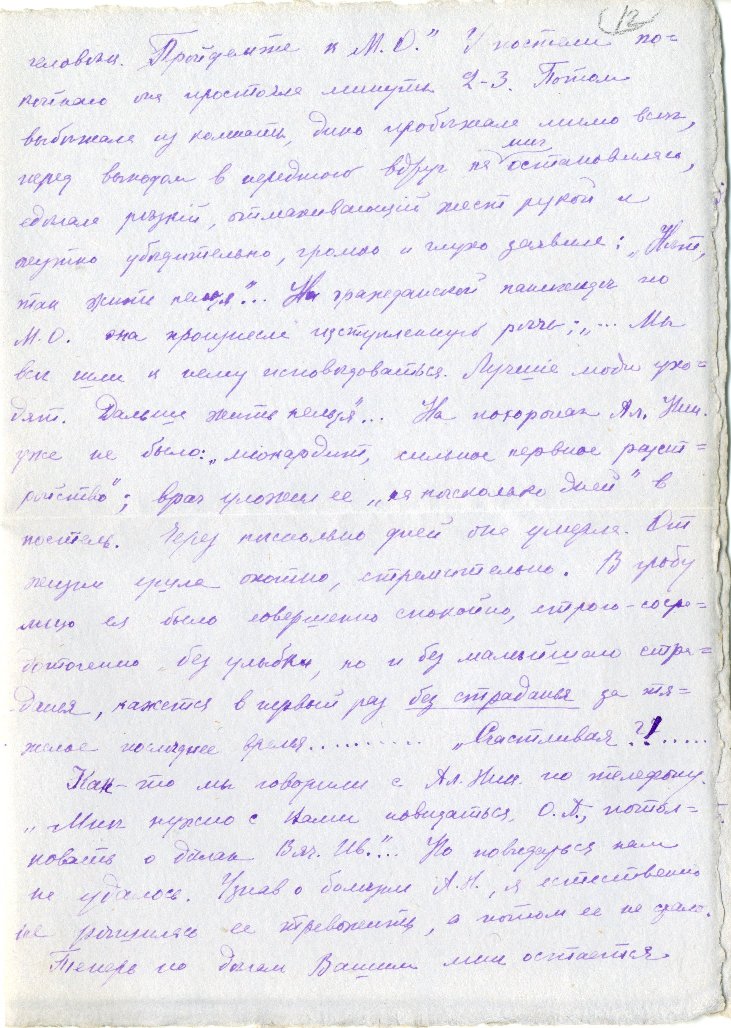 12
человѣк. Пройдемте к М.О." У постели по-
койнаго она простояла минуты 2-3. Потом
выбѣжала из комнаты, дико пробѣжала мимо всѣх,
перед выходом в переднюю вдруг на миг остановилась,
сдѣлала рѣзкій, отмахивающій жест рукой и
жутко убѣдительно, громко и глухо заявила: „Нѣт,
так жить нельзя"... На гражданской панихидѣ по
М.О. она произнесла изступленную рѣчь: „... Мы
всѣ шли к нему исповѣдоваться. Лучшіе люди ухо-
дят. Дальше жить нельзя"... На похоронах Ал. Ник.
уже не было: „міокардит, сильное нервное разст-
ройство"; врач уложил ее „на нѣсколько дней" в
постель. Через нѣсколько дней она умерла. От
жизни ушла охотно, стремительно. В гробу
лицо ея было совершенно спокойно, строго-сосре-
доточенно, без улыбки, но и без малѣйшаго стра-
данія, кажется в первый раз без страданья за тя-
желое послѣднее время........... „Счастливая"?!......
Как-то мы говорили с Ал. Ник. по телефону.
„Мнѣ нужно с Вами повидаться, О.А., потол-
ковать о дѣлах Вяч. Ив."... Но повидаться нам
не удалось. Узнав о болѣзни А.Н., я естественно
не рѣшилась ее тревожить, а потом ее не стало.
Теперь по дѣлам Вашим мнѣ остается